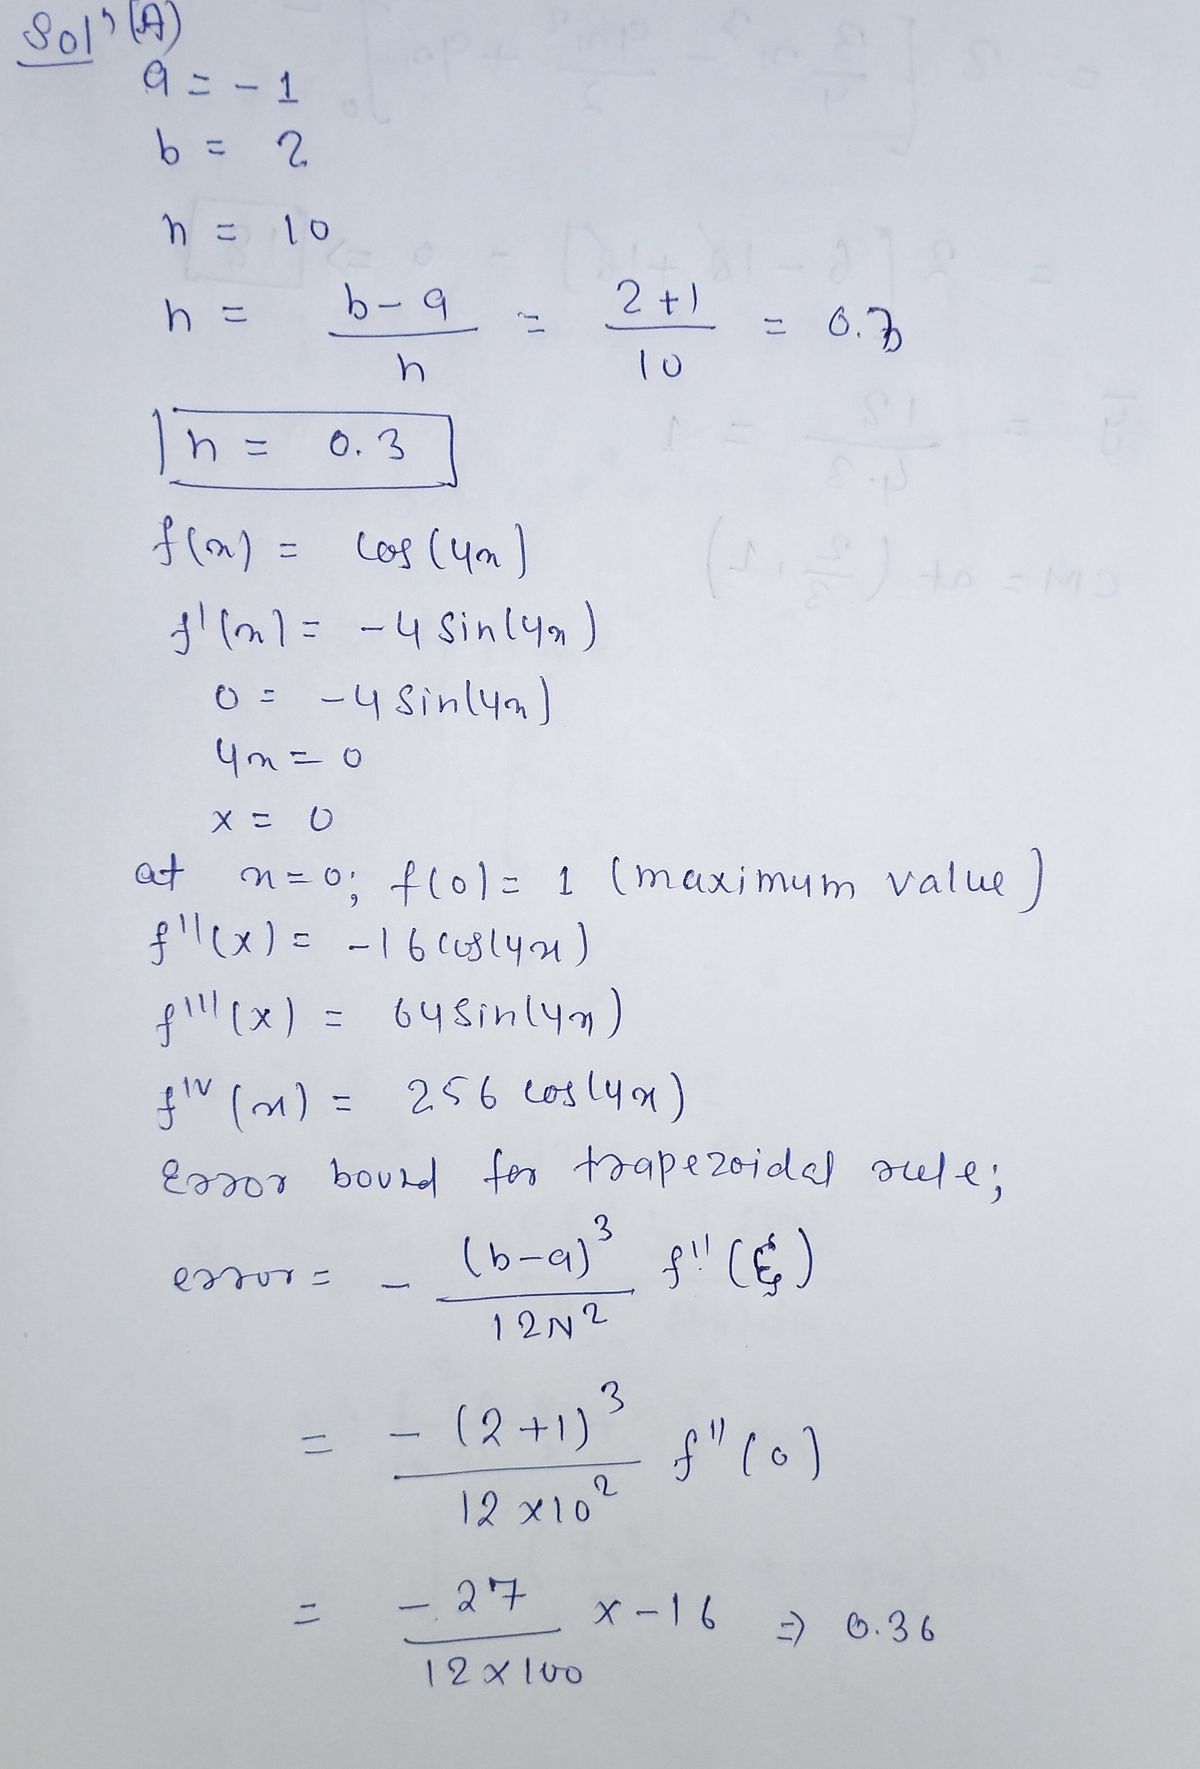 Solⁿ (A)
a = - 1
b = 2
n = 10
h = b-a / n = 2+1 / 10 = 0.3
h = 0.3
f(x) = cos(4x)
f'(x) = -4 sin(4x)
0 = -4 sin(4x)
4x = 0
x = 0
at x=0; f(0) = 1 (maximum value)
f''(x) = -16 cos(4x)
f'''(x) = 64 sin(4x)
f^IV (x) = 256 cos(4x)
Error bound for trapezoidal rule;
error = - (b-a)³ / 12N² f''(ξ)
= - (2+1)³ / 12×10² f''(0)
= - 27 / 12×100 × -16 ⇒ 0.36